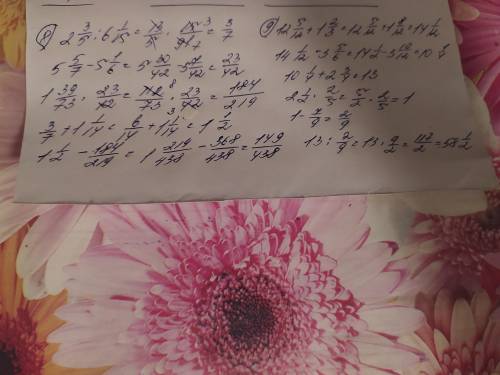 8) 2 3/5 : 6 1/15 = 13/5 · 15 3/91 7 = 3/7
5 5/7 - 5 1/6 = 5 30/42 - 5 7/42 = 23/42
1 39/73 · 23/42 = 112 8/73 · 23/42 3 = 184/219
3/7 + 1 1/14 = 6/14 + 1 1/14 = 1 1/2
1 1/2 - 184/219 = 1 219/438 - 368/438 = 149/438
9) 12 5/12 + 1 2/3 = 12 5/12 + 1 8/12 = 14 1/12
10 1/4 + 2 3/4 = 13
2 1/2 · 2/5 = 5/2 · 2/5 = 1
1 - 7/9 = 2/9
13 : 2/9 = 13 · 9/2 = 117/2 = 58 1/2